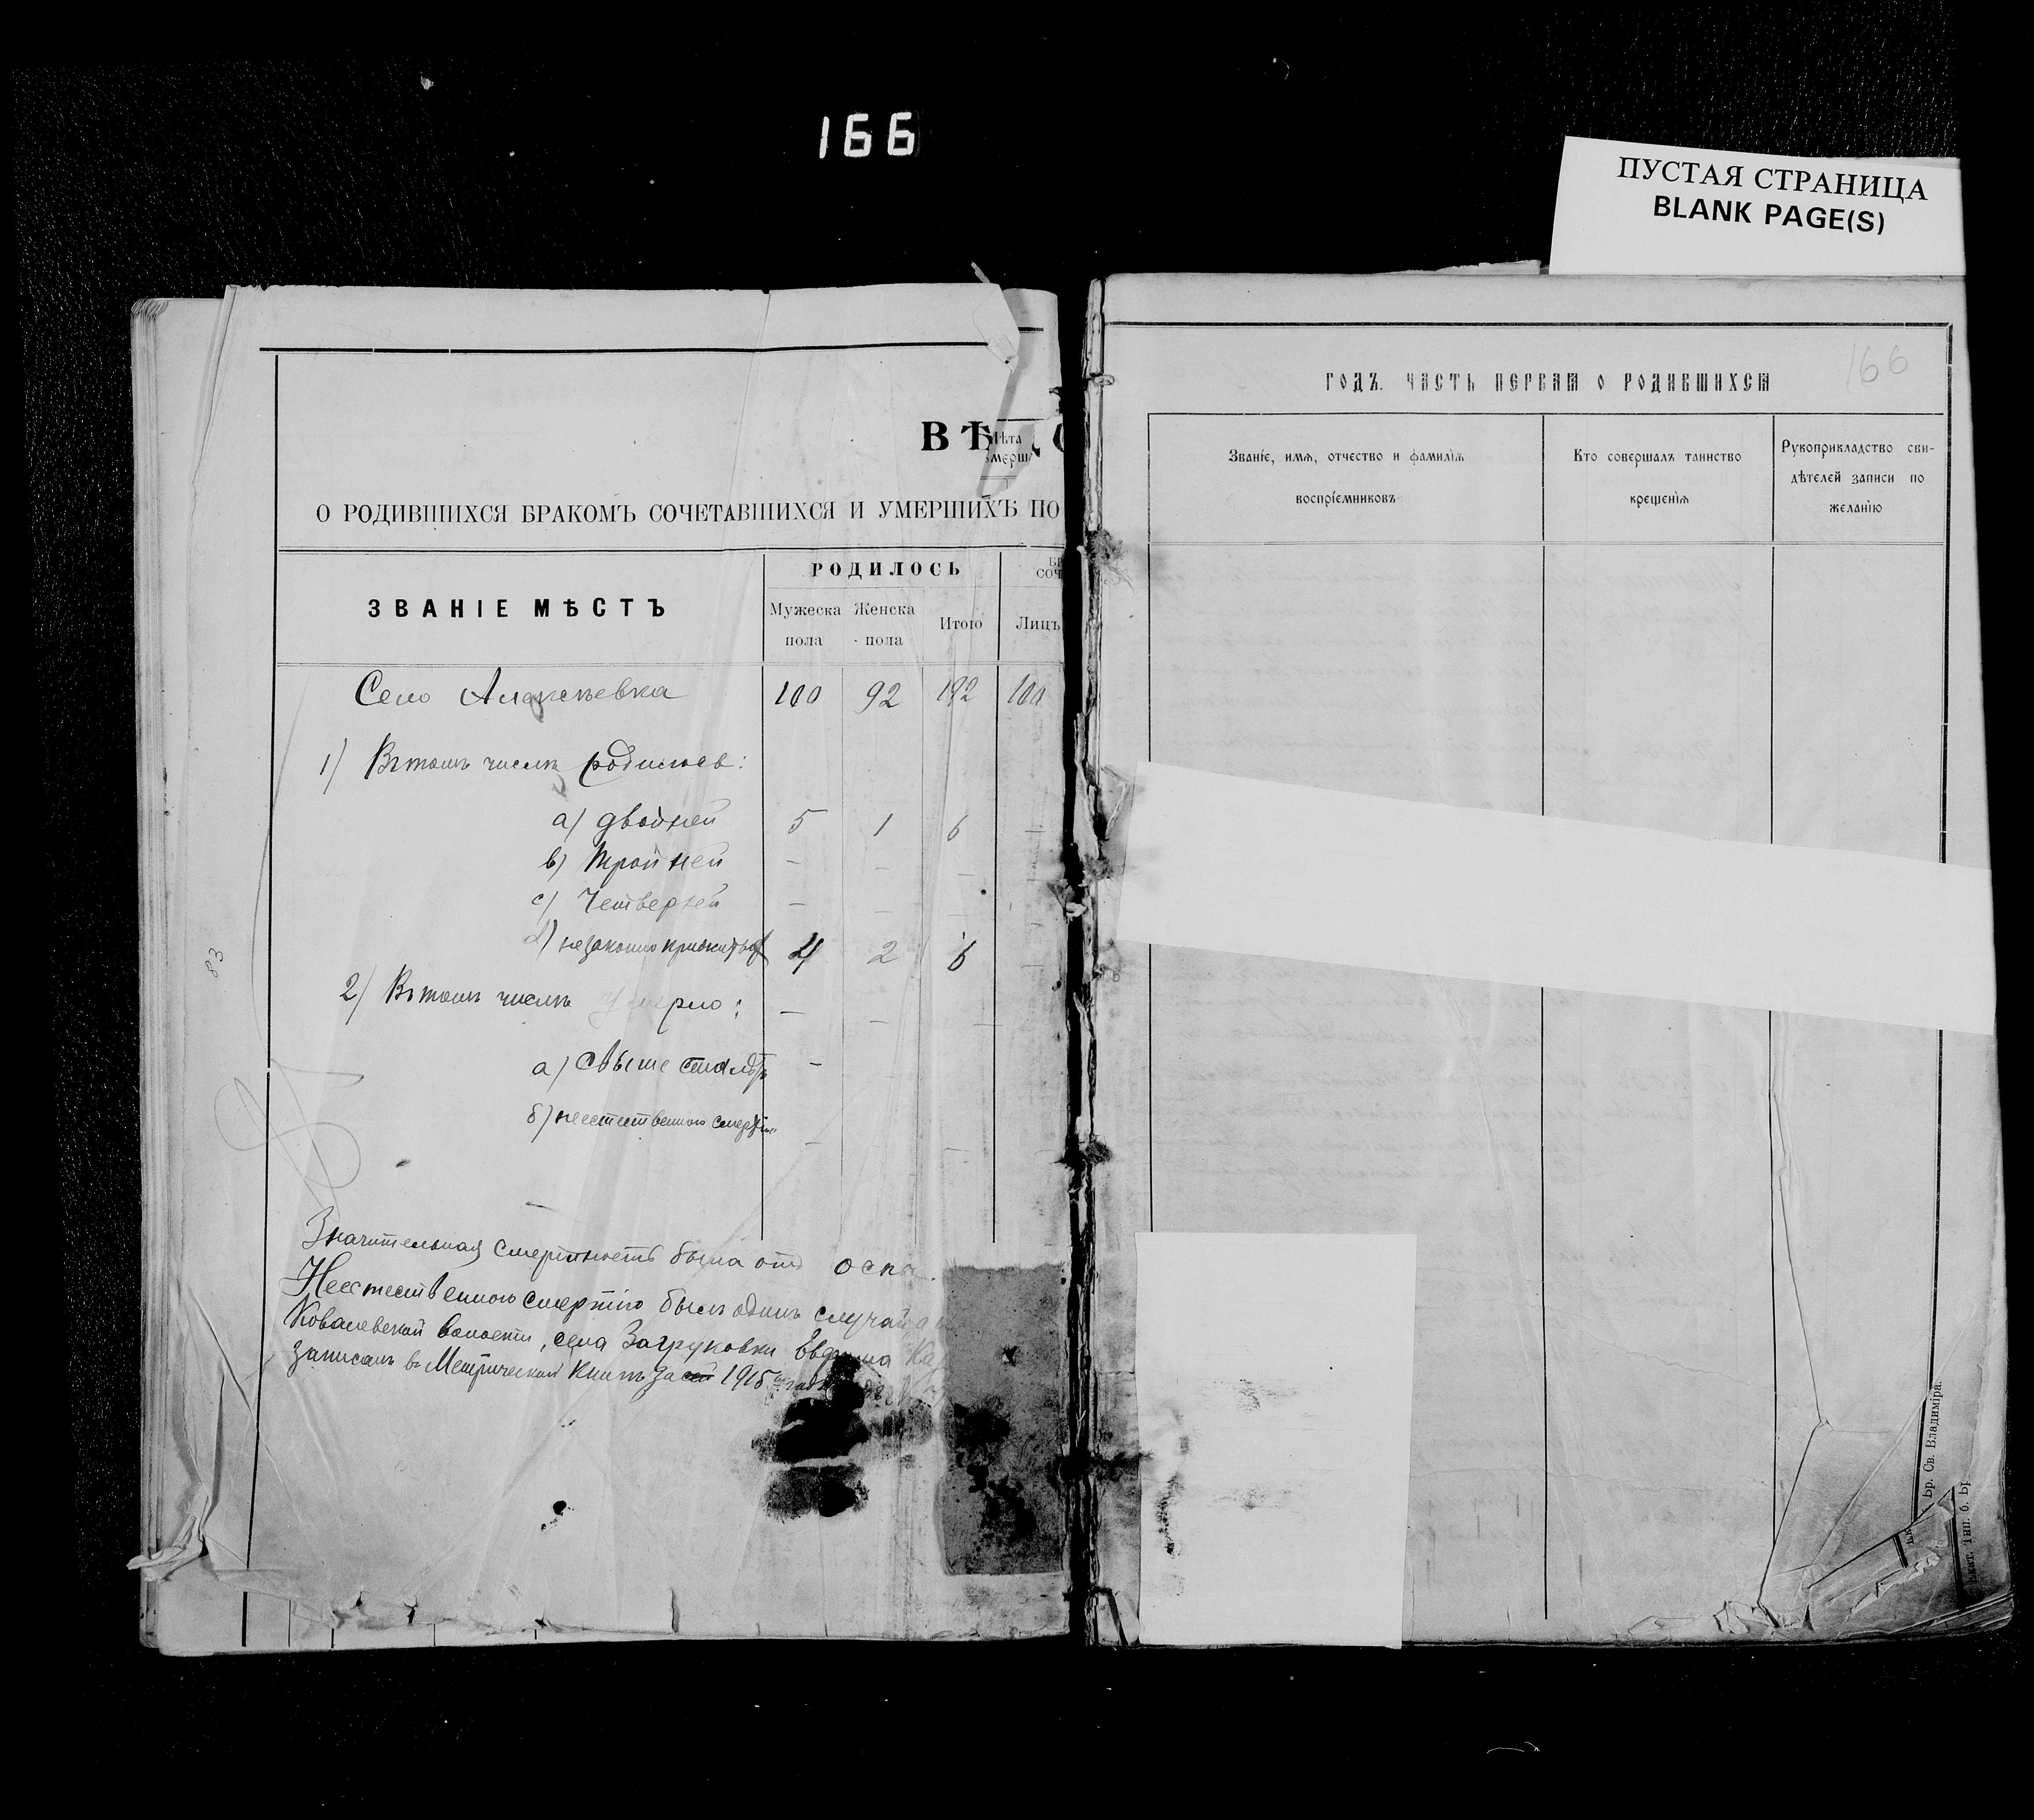 166
ПУСТАЯ СТРАНИЦА
BLANK PAGE(S)
ВѢ
О РОДИВШИХСЯ БРАКОМЪ СОЧЕТАВШИХСЯ И УМЕРШИХЪ ПО
ЗВАНІЕ МѢСТЪ
РОДИЛОСЬ
Мужеска пола
Женска пола
Итого
Лицъ
Село Алексѣевка 100 92 192 100
1) Въ томъ числѣ родилось:
а) двойней 5 1 6 —
в) Тройней — — —
с) Четверней — — —
d) незаконно прижитыхъ 4 2 6 —
2) Въ томъ числѣ умерло: — — —
а) Свыше ста лѣтъ —
б) неестественною смертію — —
83
Значительная смертность была отъ оспы.
Неестественною смертію былъ одинъ случай
Ковалевской волости, села Загруковки
записанъ въ Метрической Книгѣ за 1915
166
ГОДЪ. ЧАСТЬ ПЕРВАЯ О РОДИВШИХСЯ
Званіе, имя, отчество и фамилія
воспріемниковъ
Кто совершалъ таинство
крещенія
Рукоприкладство сви-
дѣтелей записи по
желанію
Бр. Св. Владиміра.
Тип. б. Бр